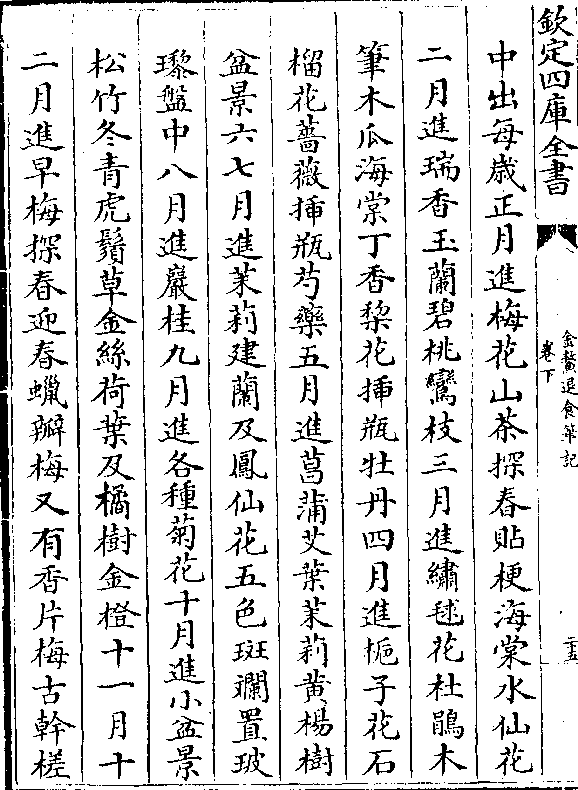 欽定四庫全書
金鰲退食筆記
卷下
二十五
中出每歳正月進梅花山茶探春貼梗海棠水仙花
二月進瑞香玉蘭碧桃鸞枝三月進繡毬花杜鵑木
筆木瓜海棠丁香棃花揷瓶牡丹四月進梔子花石
榴花薔薇揷瓶芍藥五月進菖蒲艾葉茉莉黄楊樹
盆景六七月進茉莉建蘭及鳳仙花五色斑斕置玻
瓈盤中八月進巖桂九月進各種菊花十月進小盆景
松竹冬青虎鬚草金絲荷葉及橘樹金橙十一月十
二月進早梅探春迎春蠟瓣梅又有香片梅古幹槎